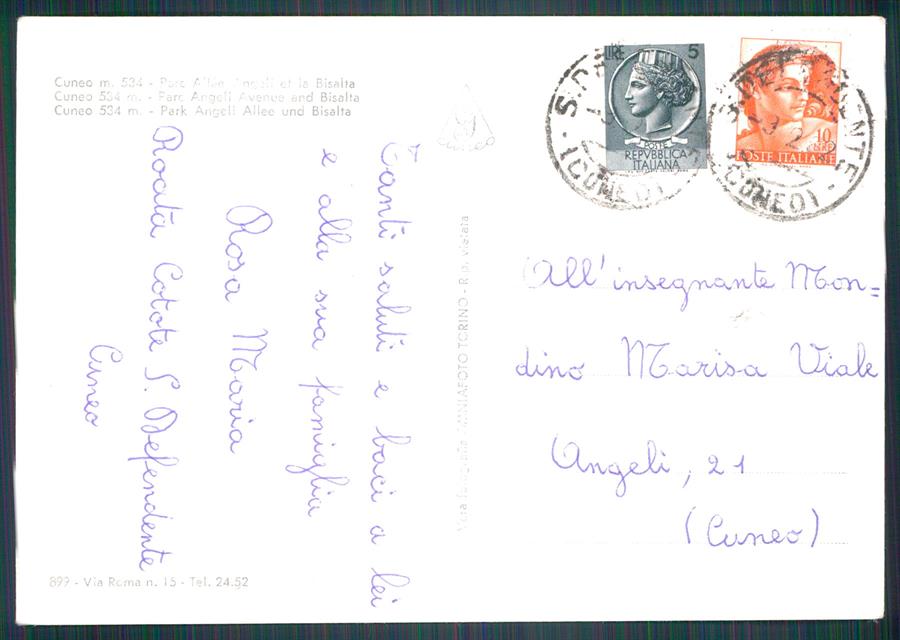 Cuneo m. 534 - Parc Allée Angeli et la Bisalta
Cuneo 534 m. - Parc Angeli Avenue and Bisalta
Cuneo 534 m. - Park Angeli Allee und Bisalta
Tanti saluti e baci a lei
e alla sua famiglia
Rosa Maria
Rocatà Cotote S. Defendente
Cuneo
899 - Via Roma n. 15 - Tel. 24.52
Vera fotografia - OMNIAFOTO TORINO - Rip. vietata
LIRE 5
POSTE
REPVBBLICA
ITALIANA
10
LIRE
POSTE ITALIANE
(CUNEO)
(CUNEO)
All'insegnante Mon=
dino Marisa Viale
Angeli, 21
(Cuneo)